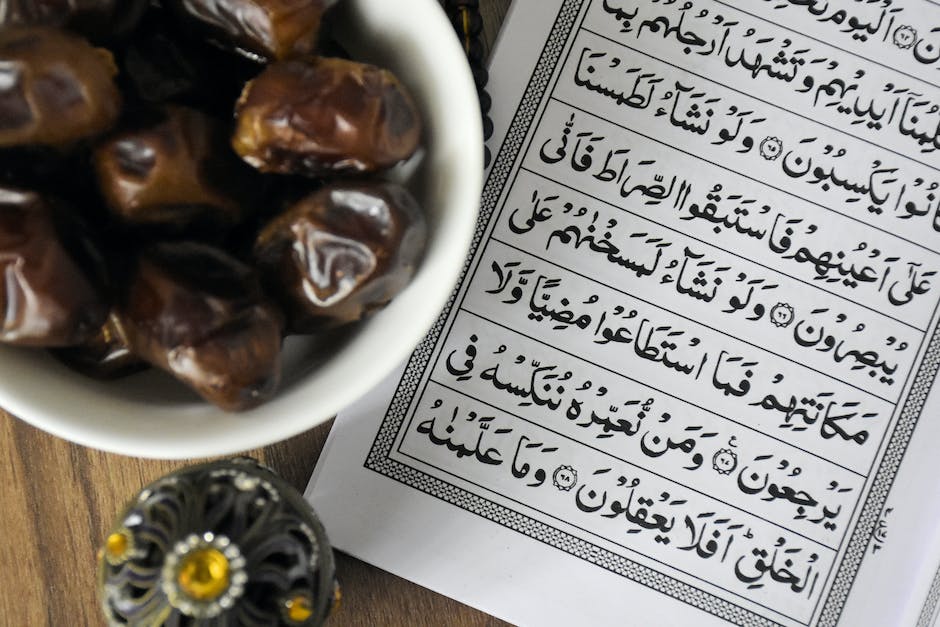 اَلْيَوْمَ
اَيْدِيْهِمْ وَتَشْهَدُ اَرْجُلُهُمْ بِمَا
انُوْا يَكْسِبُوْنَ ٦٥ وَلَوْ نَشَآءُ لَطَمَسْنَا
عَلٰٓى اَعْيُنِهِمْ فَاسْتَبَقُوا الصِّرَاطَ فَاَنّٰى
يُبْصِرُوْنَ ٦٦ وَلَوْ نَشَآءُ لَمَسَخْنٰهُمْ عَلٰى
مَكَانَتِهِمْ فَمَا اسْتَطَاعُوْا مُضِيًّا وَّلَا
يَرْجِعُوْنَ ٦٧ وَمَنْ نُّعَمِّرْهُ نُنَكِّسْهُ فِى
الْخَلْقِ ؕ اَفَلَا يَعْقِلُوْنَ ٦٨ وَمَا عَلَّمْنٰهُ